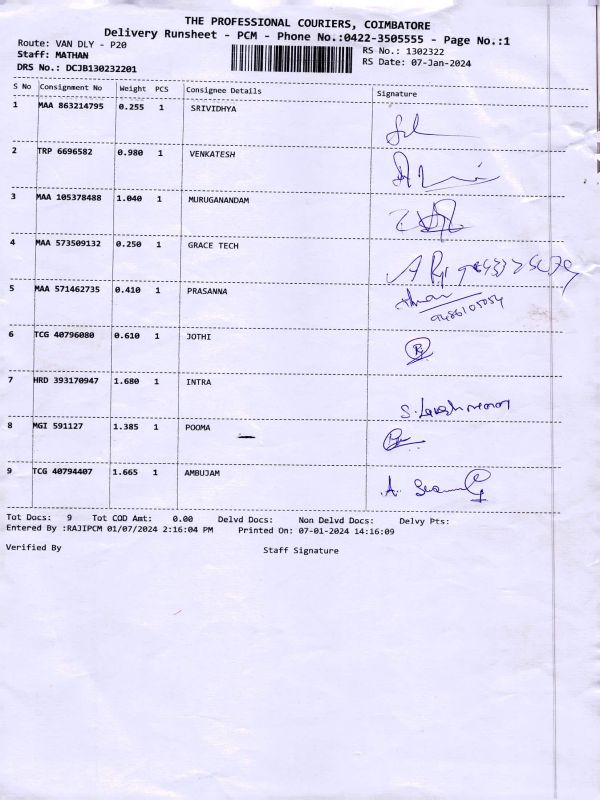 THE PROFESSIONAL COURIERS, COIMBATORE
Delivery Runsheet - PCM - Phone No.:0422-3505555 - Page No.:1
Route: VAN DLY - P20 RS No.: 1302322
Staff: MATHAN RS Date: 07-Jan-2024
DRS No.: DCJB130232201
S No Consignment No Weight PCS Consignee Details Signature
1 MAA 863214795 0.255 1 SRIVIDHYA
2 TRP 6696582 0.980 1 VENKATESH
3 MAA 105378488 1.040 1 MURUGANANDAM
4 MAA 573509132 0.250 1 GRACE TECH
5 MAA 571462735 0.410 1 PRASANNA
9486105054
6 TCG 40796080 0.610 1 JOTHI
7 HRD 393170947 1.680 1 INTRA
8 MGI 591127 1.385 1 POOMA
9 TCG 40794407 1.665 1 AMBUJAM
Tot Docs: 9 Tot COD Amt: 0.00 Delvd Docs: Non Delvd Docs: Delvy Pts:
Entered By :RAJIPCM 01/07/2024 2:16:04 PM Printed On: 07-01-2024 14:16:09
Verified By Staff Signature